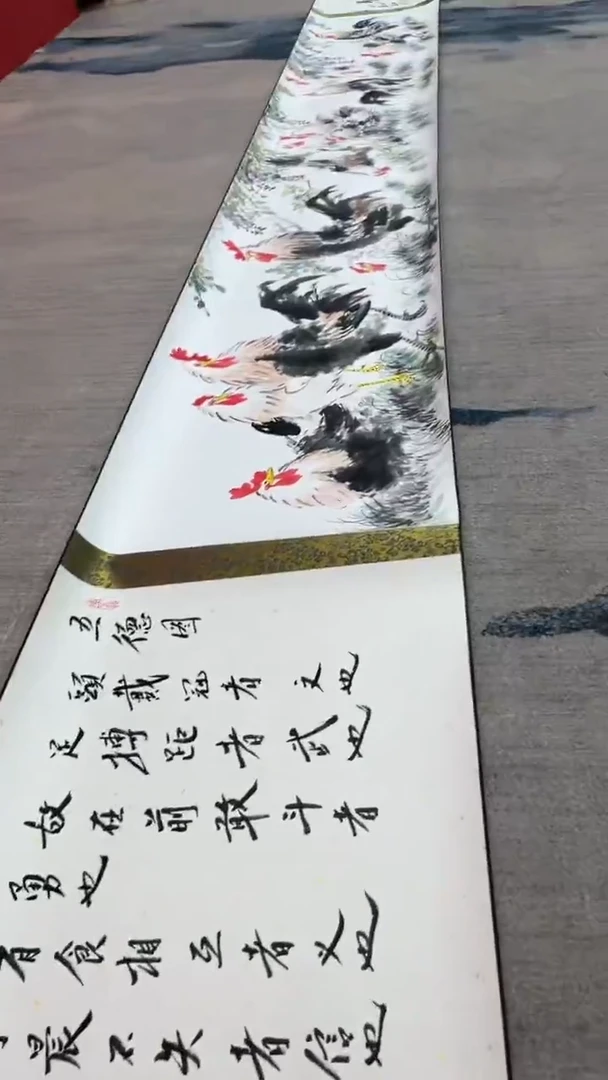 五德图
頭戴冠者文也
足搏距者武也
敌在前敢斗者
勇也
有食相互者义也
晨不失者信也